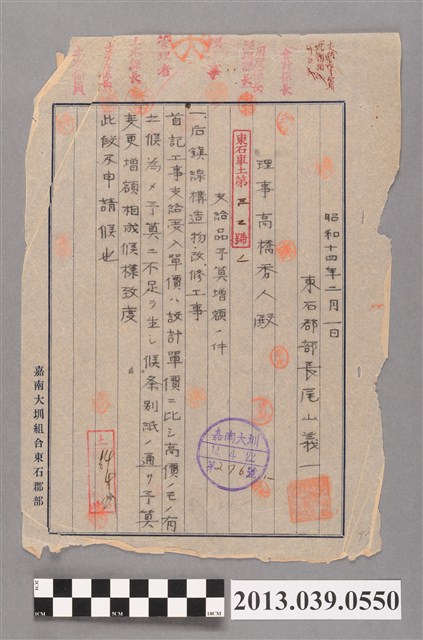 昭和十四年二月一日
東石郡部長尾山義一
理事高橋香人殿
東石軍土第五二號ノ
支給品予算增額ノ件
一、后鎮線構造物改修工事
首記工事支給受入單價ハ設計單價ニ比シ高價ノモノ有
之候為メ予算ニ不足ヲ生シ候条別紙ノ通リ予算
変更增額相成候様致度
此段及申請候也
嘉南大圳
14.4.22
第276號
土
嘉南大圳組合東石郡部
管理者
2013.039.0550